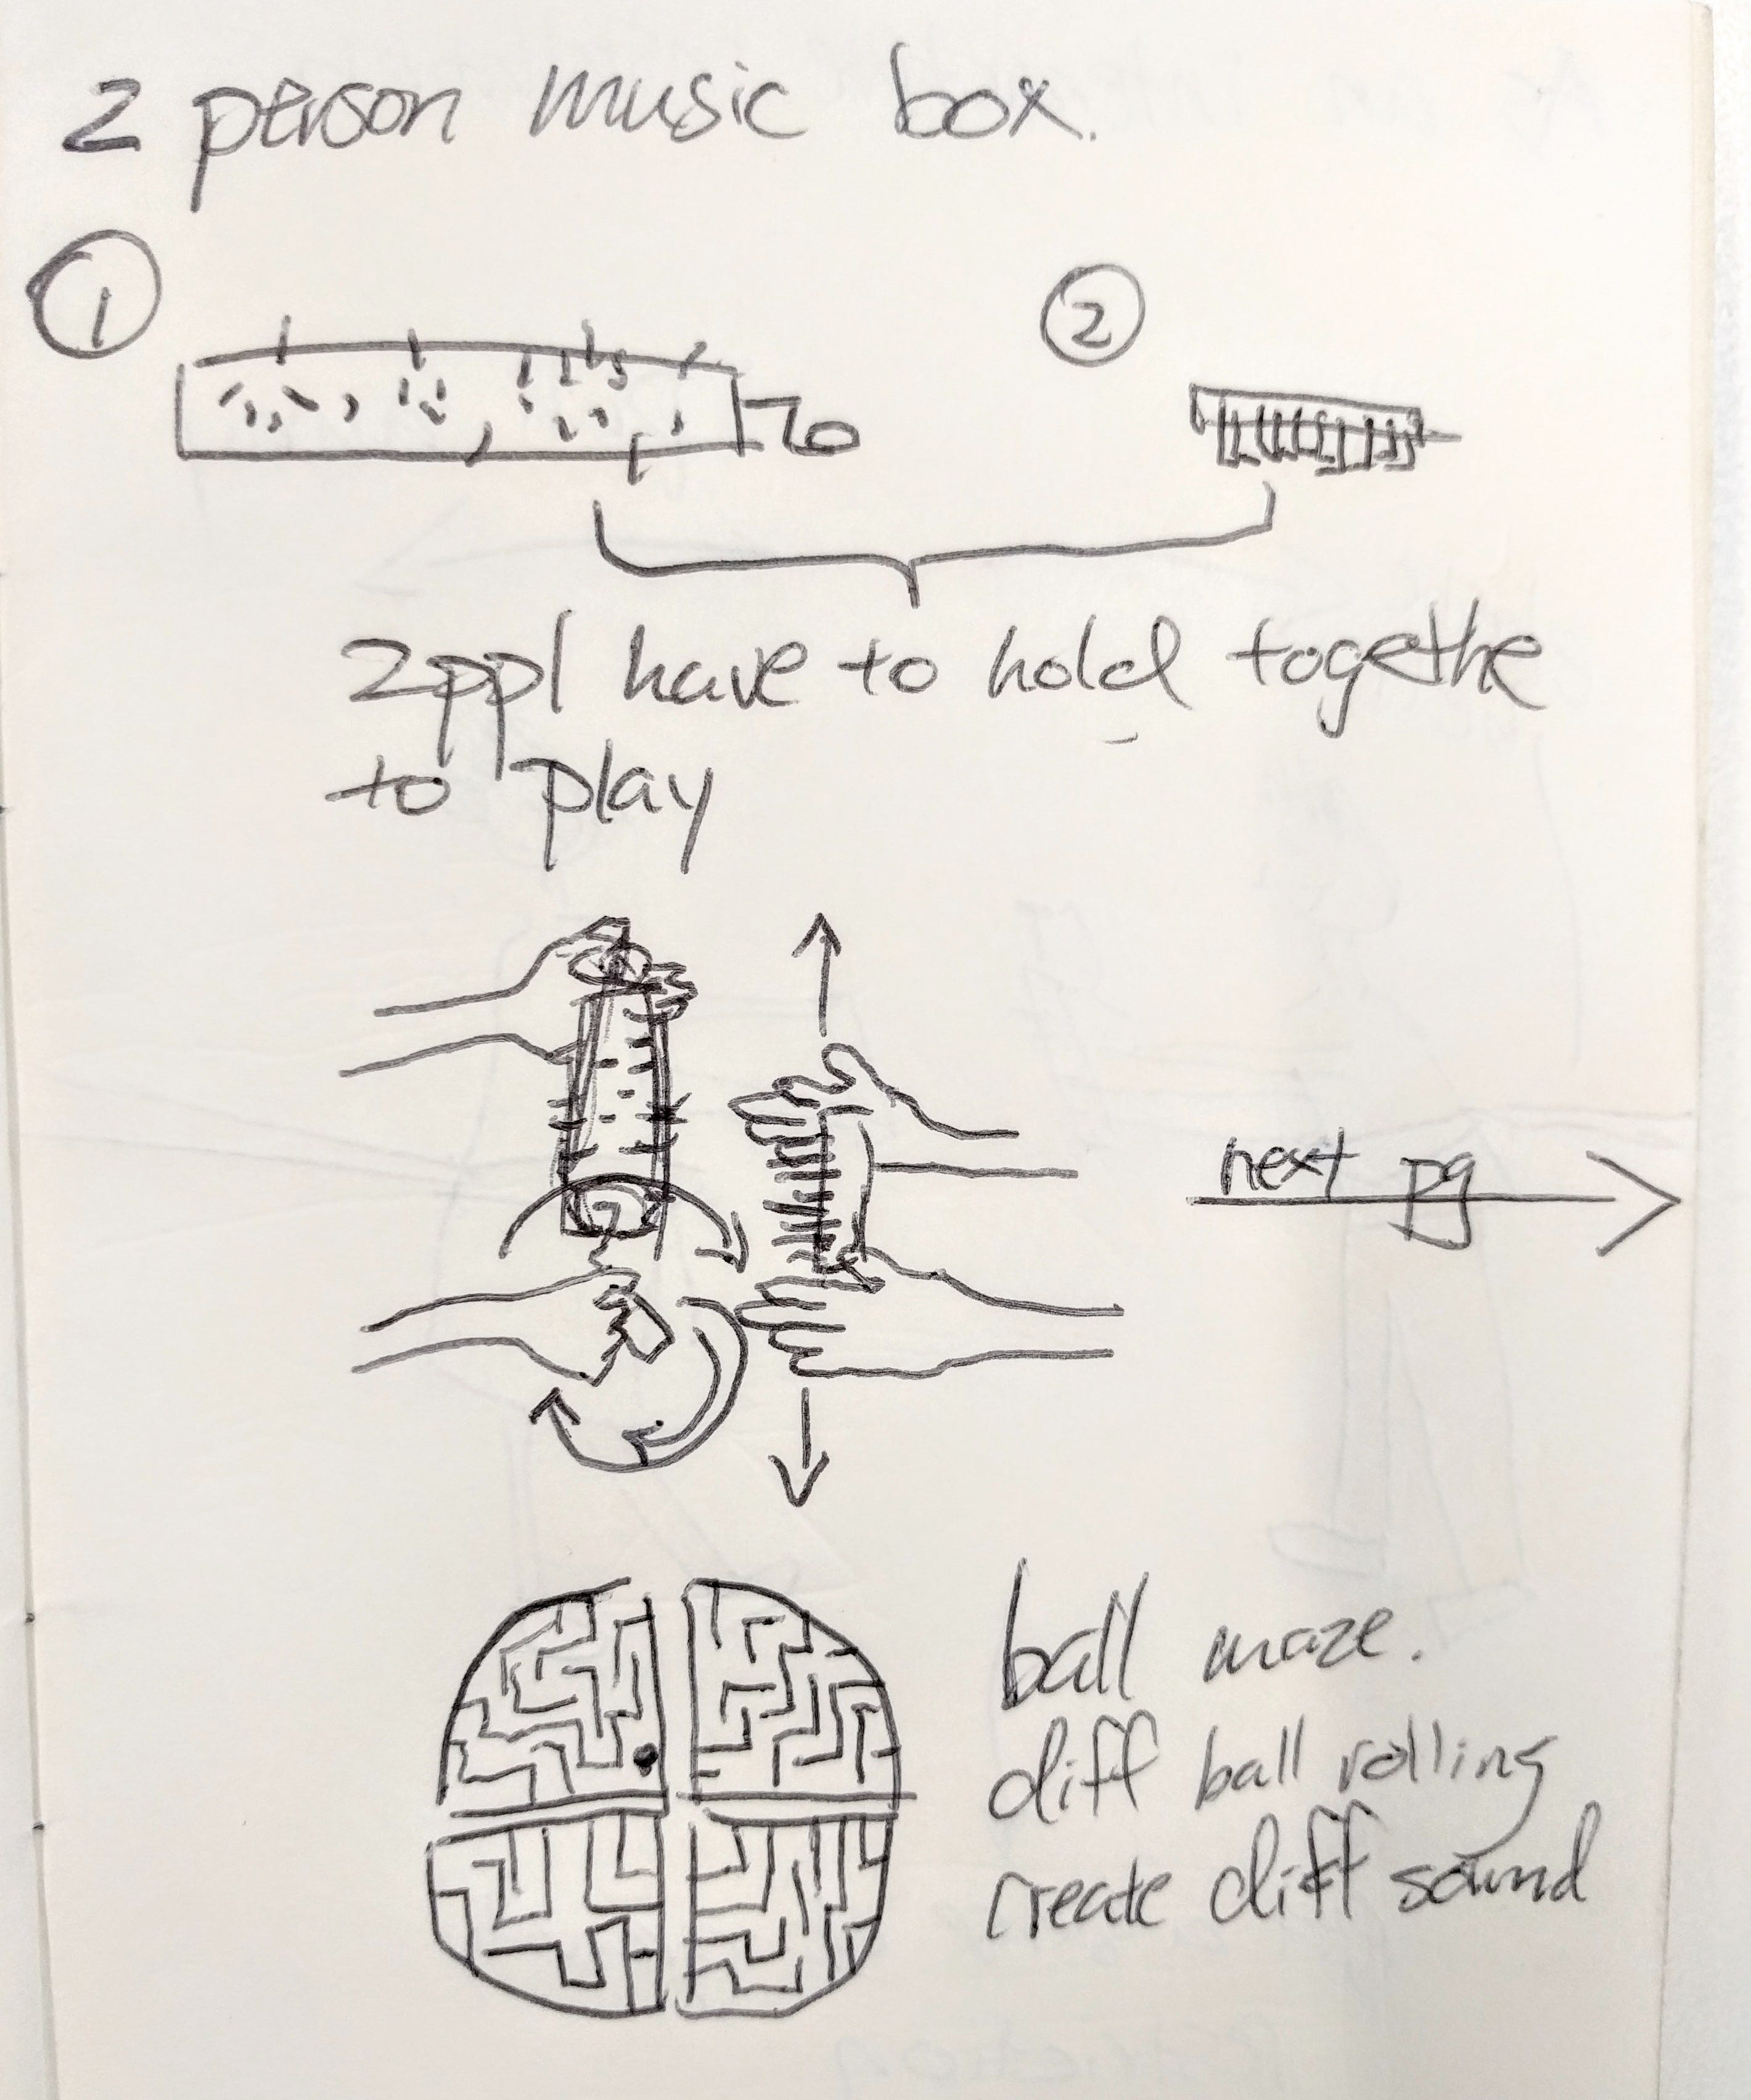 2 person music box.
1
2
2ppl have to hold togethe
to play
next pg
ball maze.
diff ball rolling
create diff sound